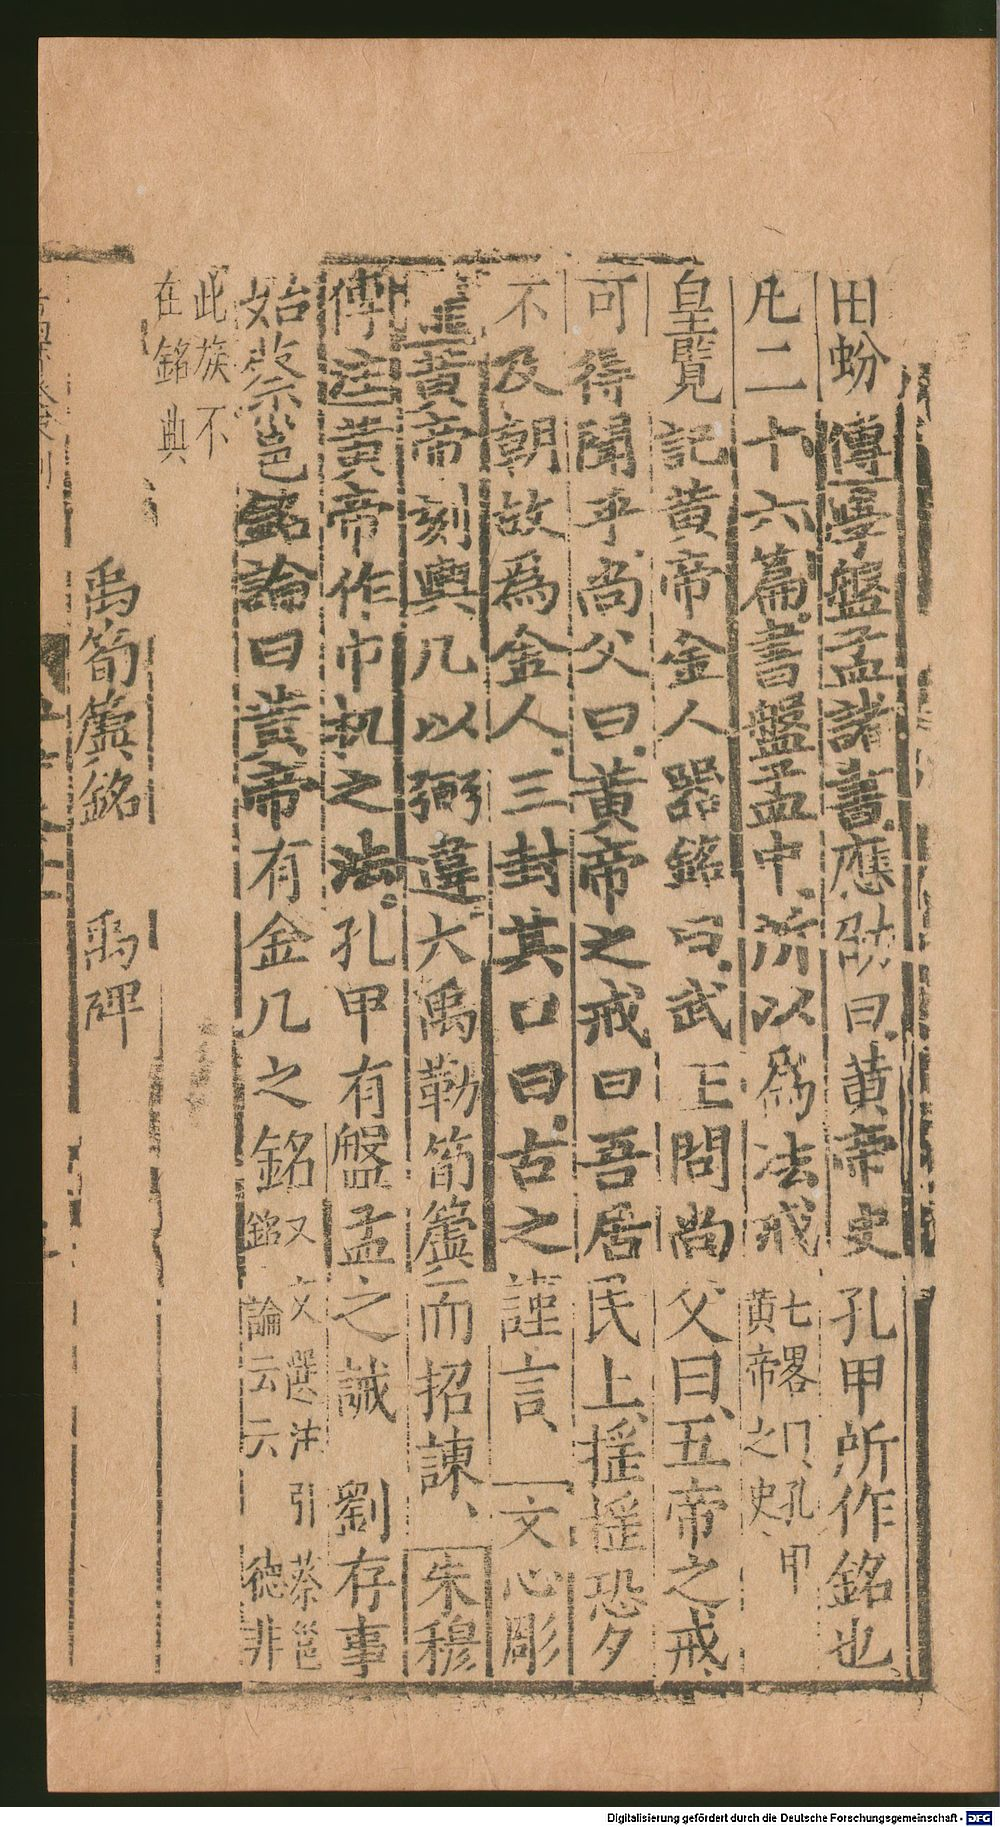 田蚡傳學盤孟諸書應劭曰黃帝史孔甲所作銘也
凡二十六篇書盤孟中所以為法戒
七畧曰孔甲
黃帝之史
皇覽記黃帝金人器銘曰武王問尚父曰五帝之戒
可得聞乎尚父曰黃帝之戒曰吾居民上揺揺恐夕
不及朝故為金人三封其口曰古之謹言文心彫
黃帝刻輿几以弼違大禹勒筍簴而招諫朱穆
傳注黃帝作巾机之法孔甲有盤孟之誡 劉存事
始蔡邕銘論曰黃帝有金几之銘
又文選注引蔡邕
銘論云云 德非
此族不
在銘典
禹筍簴銘 禹碑
Digitalisierung gefördert durch die Deutsche Forschungsgemeinschaft - DFG